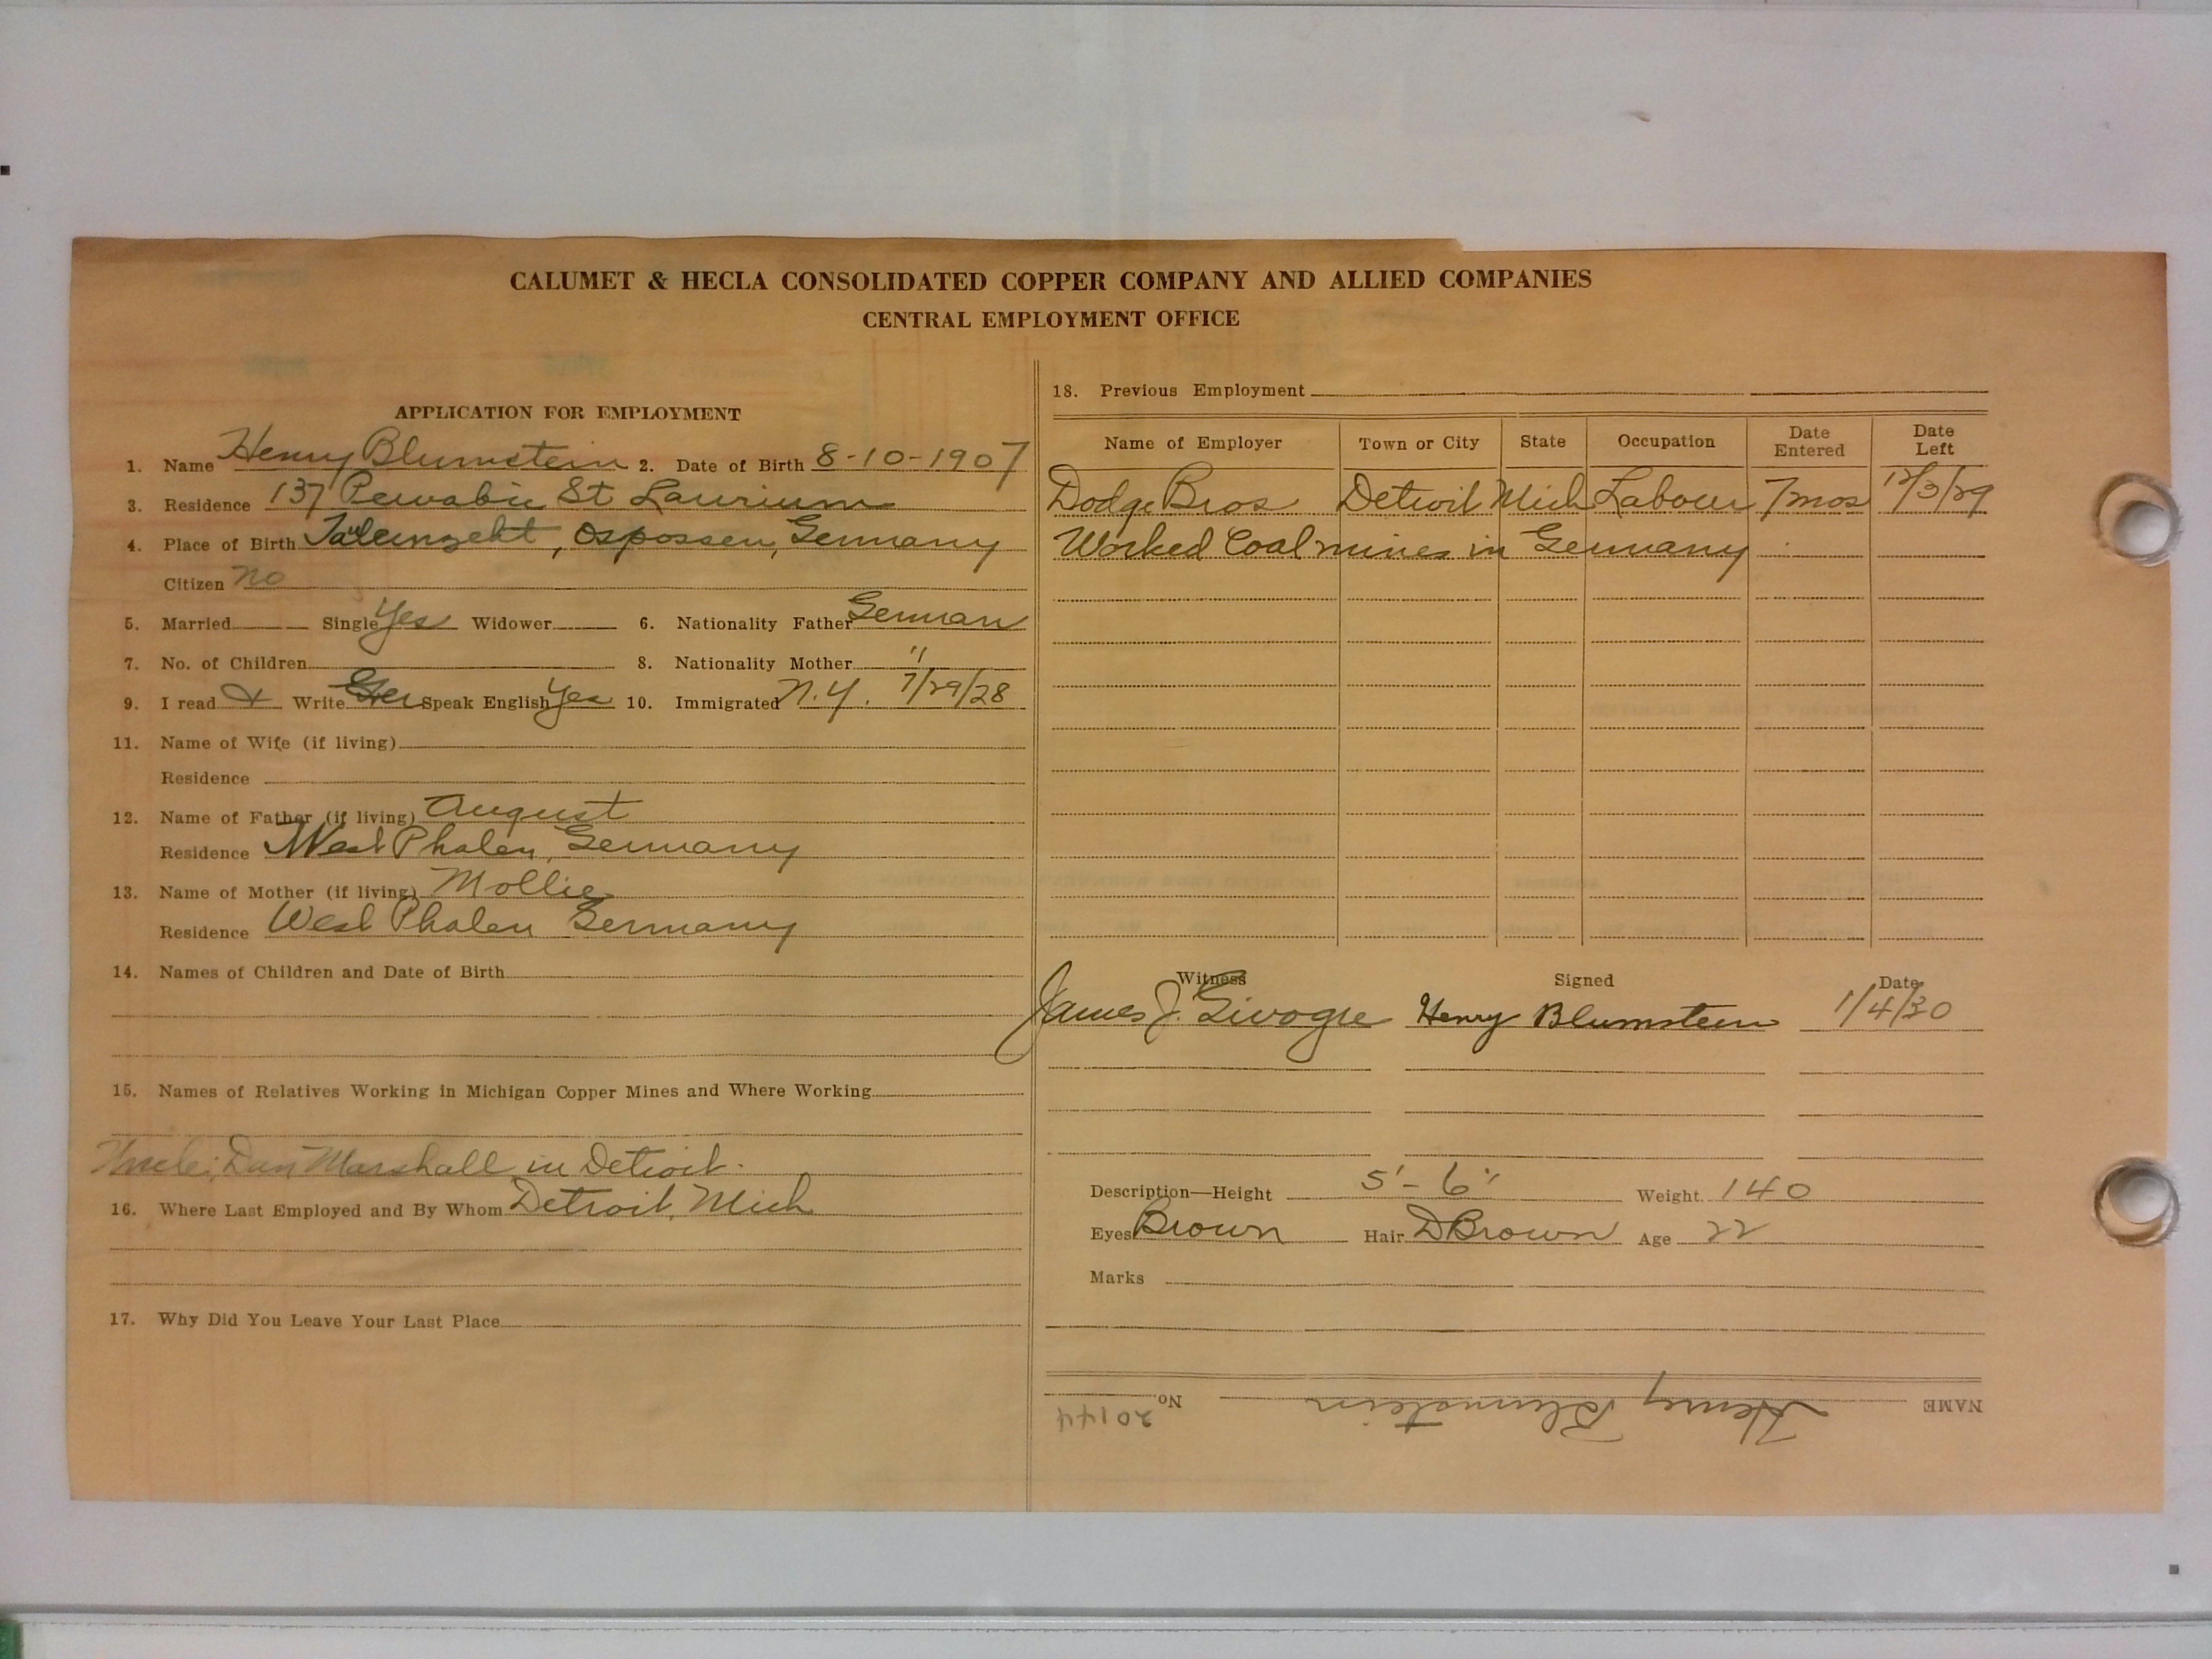 CALUMET & HECLA CONSOLIDATED COPPER COMPANY AND ALLIED COMPANIES
CENTRAL EMPLOYMENT OFFICE
APPLICATION FOR EMPLOYMENT
1. Name Henry Blumstein 2. Date of Birth 8-10-1907
3. Residence 137 Pewabic St Laurium
4. Place of Birth Germany
Citizen No
5. Married Single Yes Widower 6. Nationality Father German
7. No. of Children 8. Nationality Mother "
9. I read & Write Ger Speak English Yes 10. Immigrated N.Y. 7/29/28
11. Name of Wife (if living)
Residence
12. Name of Father (if living) August
Residence West Phalen, Germany
13. Name of Mother (if living) Mollie
Residence West Phalen Germany
14. Names of Children and Date of Birth
15. Names of Relatives Working in Michigan Copper Mines and Where Working
Uncle: Dan Marshall in Detroit.
16. Where Last Employed and By Whom Detroit, Mich
17. Why Did You Leave Your Last Place
18. Previous Employment
Name of Employer Town or City State Occupation Date Entered Date Left
Dodge Bros Detroit Mich Labour 7 mos 12/3/29
Worked Coal mines in Germany
Witness Signed Date
James J. Henry Blumstein 1/4/30
Description—Height 5'-6" Weight 140
Eyes Brown Hair D Brown Age 22
Marks
NAME Henry Blumstein No. 20144